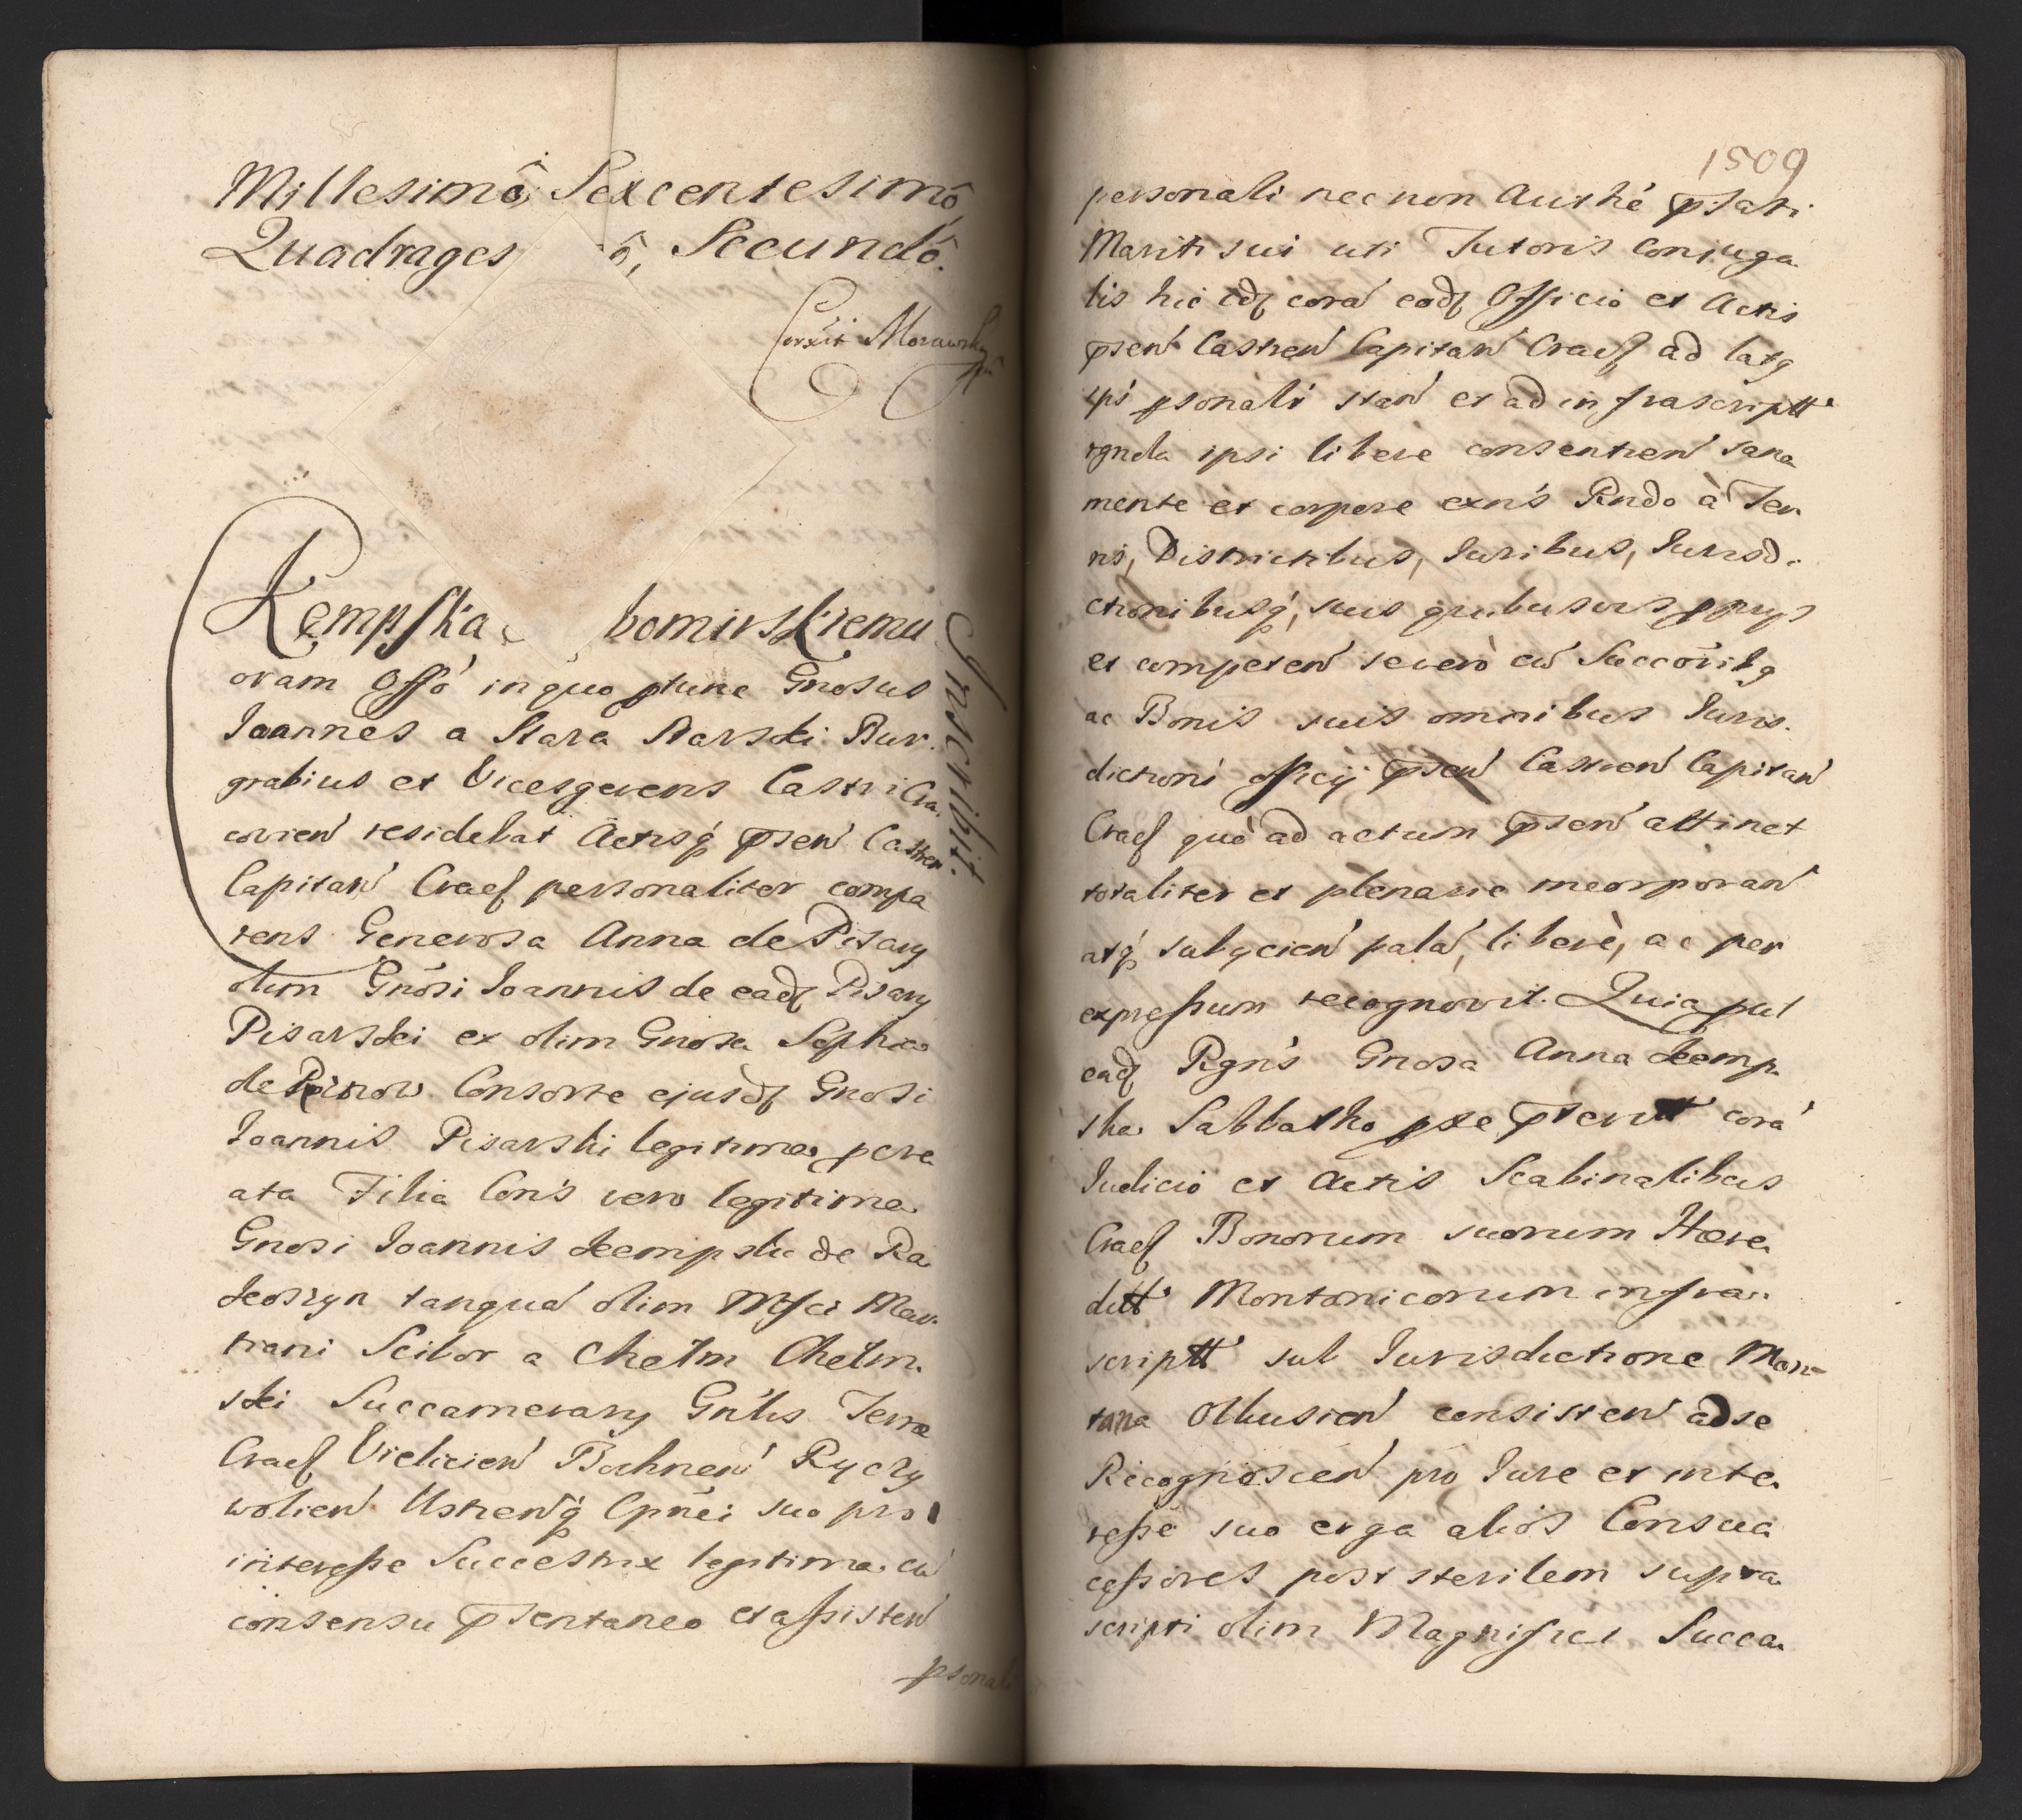 Millesimô, Sexcentesimô,
Quadrages ô, Secundô.
Morawsky
Kempska bomirskiemu
Inscribit.
oram Offô in quo ptunc Gnosus
Ioannes a Stara Starski Bur.
grabius et Vicesgerens Castri Cra.
covień residebat Actisq́ pseń Castren
Capitań Cracf personaliter compa
rens Generosa Anna de Pisary
olim Gnosi Ioannis de eadf Pisary
Pisarski ex olim Gnosa Sophia
de Consorte ejusdf Gnosi
Ioannis Pisarski legitime pcre
ata Filia Con's vero legitima
Gnosi Ioannis Kempski de Ra
koszyn tanquá olim Mfci Mar.
trani Scibor a Chełm Chełm.
ski Succamerary Gn'lis Terræ
Cracf Vielicień Bochneń Ryczy
wolień Ustreńq́ Cpnei suo pro
interesse Successtrix legitima cú
consensu psentaneo et assisteń
psonali
1509
personali nec non Authé pstati
Mariti sui uti Tutoris Conjuga
lis hic edf corá eodf Officio et Actis
pseń Castreń Capitań Cracf ad latq
ipś psonalí stań et ad infrascriptt
rgnda ipsi libere consentień sana
mente et corpore exn's Rndo à Ter
ris, Districtibus, Iuribus, Iurisd.
ctionibusq́, suis pprys
et competeń severò cú Succoribq
ac Bonis suis omnibus Iuris.
dictioni officij pseń Castreń Capitań
Cracf quò ad actum pseń attinet
totaliter et plenarie incorporań
atq́ subycień palá, liberè, ac per
expressum recognovit. Quia
eadf Rgn's Gnosa Anna Kemp.
ska Sabbatho pxe corá
Iudicio et Actis Scabinalibus
Cracf Bonorum suorum Hære
ditt Montanicorum infra.
scriptt sub Iurisdictione Mon-
tana Olkusień consisteń ad se
Recognósceń pro Iure et inte.
resse suo erga aliós Consuc
cessores post sterilem supra
scripti olim Magnifici Succa.